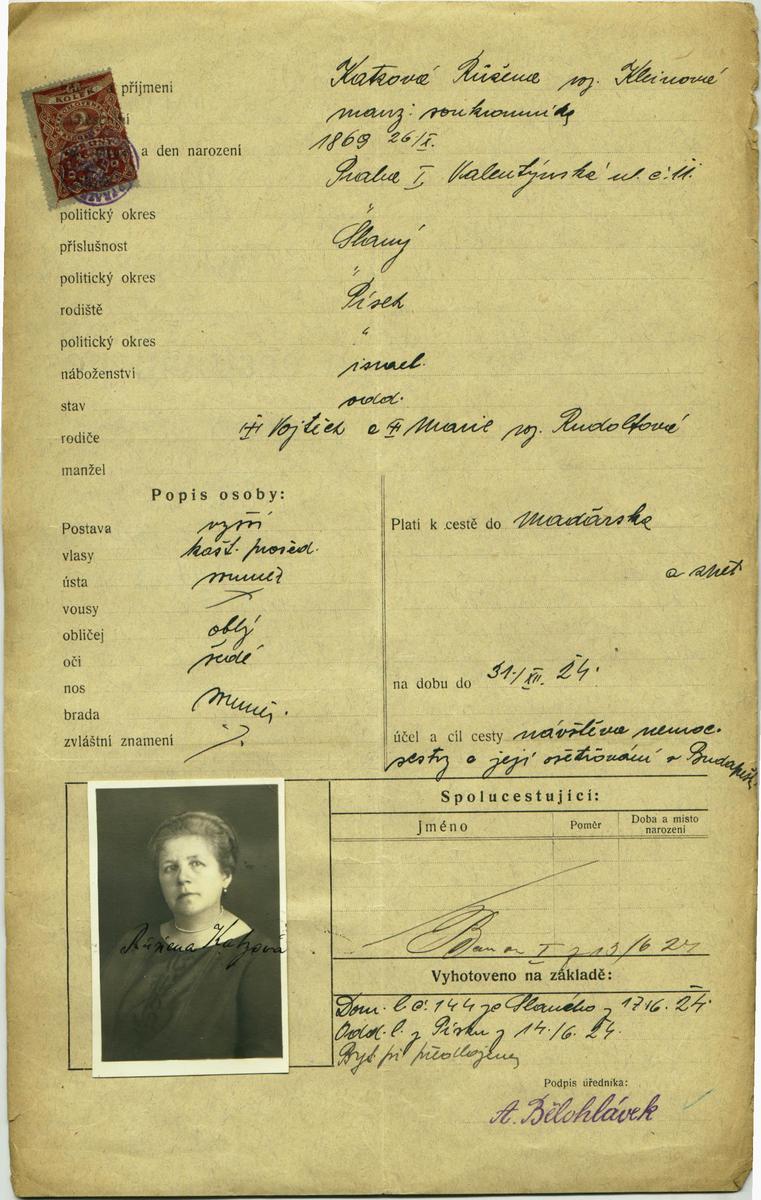 KOLEK
2
a příjmení Katzová Růžena roz. Kleinová
manž. soukromníka
a den narození 1869 26/X.
Praha I, Valentýnská ul. č. 11.
politický okres "
příslušnost Slaný
politický okres "
rodiště Písek
politický okres "
náboženství israel.
stav vdd.
rodiče Vojtěch a Marie roz. Rudolfová
manžel
Popis osoby:
Postava vyšší
vlasy kašt. prošed.
ústa souměr
vousy
obličej oblý
oči šedé
nos
brada souměr.
zvláštní znamení
Platí k cestě do Maďarska
a zpět
na dobu do 31./XII. 24.
účel a cíl cesty návštěva nemoc.
sestry a její ošetřování v Budapešti
Růžena Katzová
Spolucestující:
Jméno Poměr Doba a místo narození
13/6 24
Vyhotoveno na základě:
Dom. l. č. 144 ze Slaného z 17/6. 24.
Odd. l. z Písku z 14./6. 24.
Byt. při. předložena
Podpis úředníka:
A. Bělohlávek